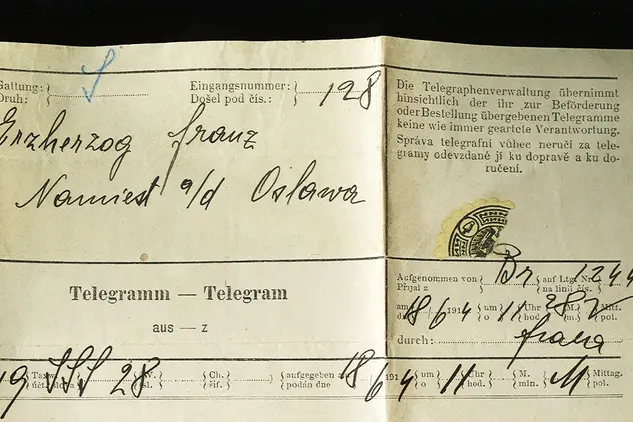 Gattung:
Druh:
Eingangsnummer:
Došel pod čís.:
128
Erzherzog Franz
Namiest a/d Oslawa
Die Telegraphenverwaltung übernimmt
hinsichtlich der ihr zur Beförderung
oder Bestellung übergebenen Telegramme
keine wie immer geartete Verantwortung.
Správa telegrafní vůbec neručí za tele-
gramy odevzdané jí ku dopravě a ku do-
ručení.
Telegramm — Telegram
aus — z
Aufgenommen von Br auf Ltg. Nr. 1244
Přijal z na linii čís.
am 18/6 1914 um 11 Uhr 28 M. Mitt.
o hod. pol.
durch:
Taxw. 28 W. Ch. aufgegeben 18/6 1914 um 11 Uhr M. Mittag.
sl. šif. podán dne o hod. min. pol.